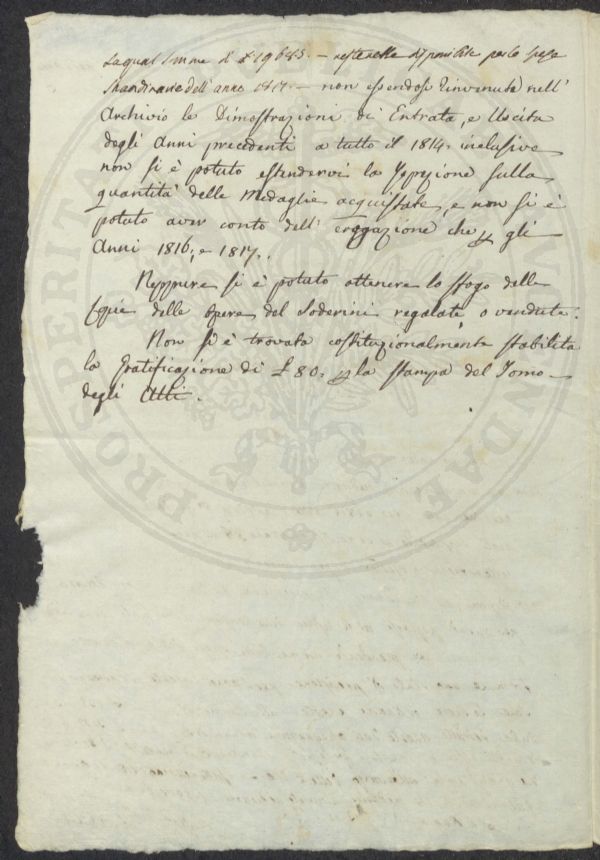 La qual Somma di £ 1968.5. – resterebbe disponibile per le spese
Straordinarie dell'anno 1817. – non essendosi rinvenute nell'
Archivio le Dimostrazioni di Entrata, e Uscita
degli Anni precedenti a tutto il 1814. inclusive
non si è potuto estendervi la Ispezione sulla
quantità delle Medaglie acquistate, e non si è
potuto aver conto dell'erogazione che p gli
Anni 1816, e 1817.
Neppure si è potuto ottenere lo sfogo delle
Copie delle opere del Soderini regalate o vendute.
Non si è trovata costituzionalmente stabilita
la Gratificazione di £ 80. p la stampa del Tomo
degli Atti.
PROSPERITA NDAE